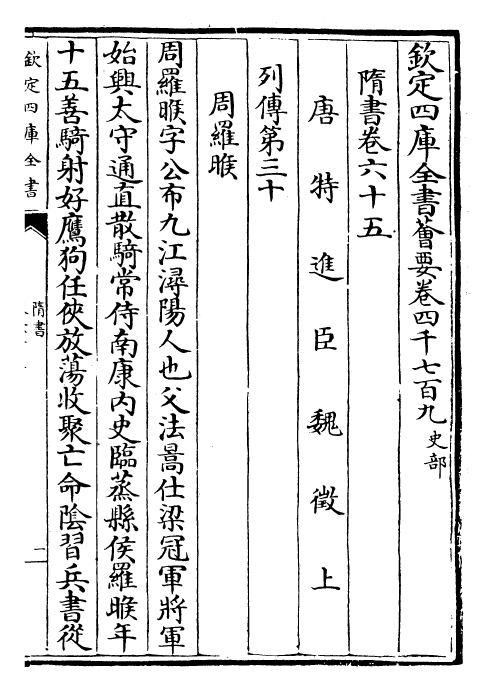 欽定四庫全書薈要卷四千七百九史部
隋書卷六十五
唐特進臣魏徵上
列傳第三十
周羅睺
周羅睺字公布九江潯陽人也父法暠仕梁冠軍將軍
始興太守通直散騎常侍南康内史臨蒸縣侯羅睺年
十五善騎射好鷹狗任俠放蕩收聚亡命陰習兵書從
欽定四庫全書
隋書